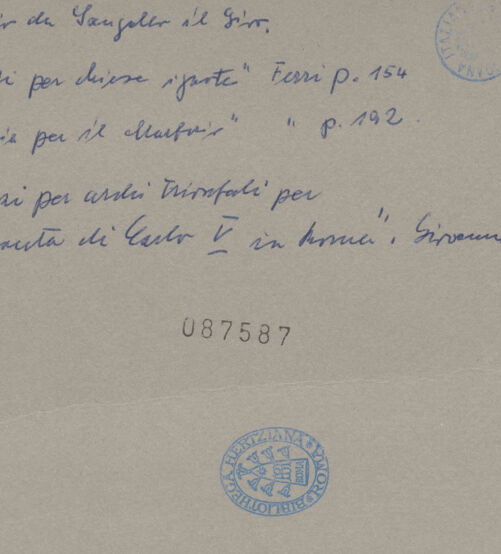 da Sangallo il Giov.
per chiese ignote" Ferri p. 154
per il " " p. 192.
per archi trionfali per
di Carlo V in Roma". Giovann
087587
BIBLIOTHECA HERTZIANA ROMA